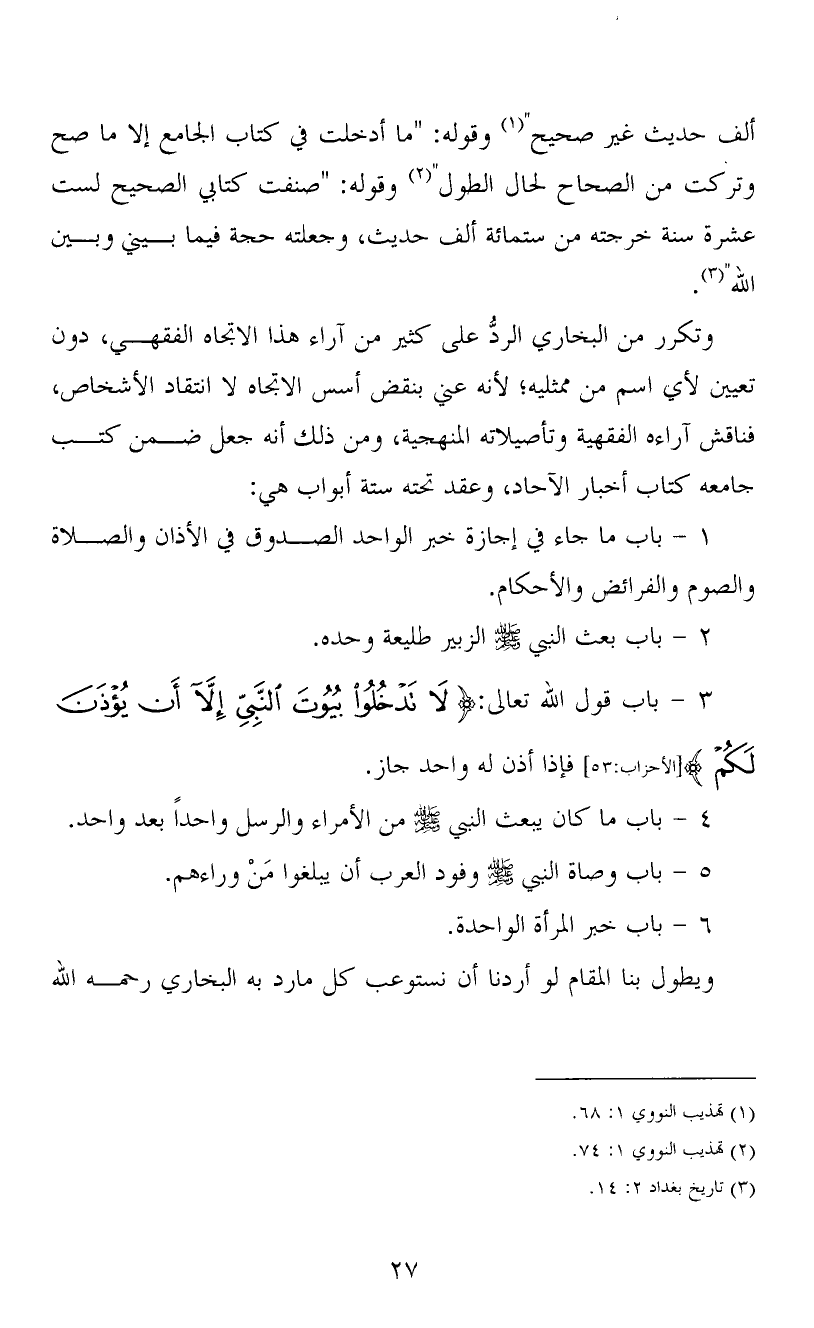 ألف حديث غير صحيح"(١) وقوله: "ما أدخلت في كتاب الجامع إلا ما صح
وتركت من الصحاح لحال الطول"(٢) وقوله: "صنفت كتابي الصحيح لست
عشرة سنة خرجته من ستمائة ألف حديث، وجعلته حجة فيما بـــيني وبـــين
الله"(٣).
وتكرر من البخاري الردُّ على كثير من آراء هذا الاتجاه الفقهـــي، دون
تعيين لأي اسم من ممثليه؛ لأنه عني بنقض أسس الاتجاه لا انتقاد الأشخاص،
فناقش آراءه الفقهية وتأصيلاته المنهجية، ومن ذلك أنه جعل ضـــمن كتـــب
جامعه كتاب أخبار الآحاد، وعقد تحته ستة أبواب هي:
١ – باب ما جاء في إجازة خبر الواحد الصـــدوق في الأذان والصـــلاة
والصوم والفرائض والأحكام.
٢ – باب بعث النبي ﷺ الزبير طليعة وحده.
٣ – باب قول الله تعالى:﴿ لَا تَدْخُلُوا۟ بُيُوتَ ٱلنَّبِيِّ إِلَّآ أَن يُؤْذَنَ
لَكُمْ ﴾[الأحزاب:٥٣] فإذا أذن له واحد جاز.
٤ – باب ما كان يبعث النبي ﷺ من الأمراء والرسل واحداً بعد واحد.
٥ – باب وصاة النبي ﷺ وفود العرب أن يبلغوا مَنْ وراءهم.
٦ – باب خبر المرأة الواحدة.
ويطول بنا المقام لو أردنا أن نستوعب كل مارد به البخاري رحمـــه الله
(١) تهذيب النووي ١: ٦٨.
(٢) تهذيب النووي ١: ٧٤.
(٣) تاريخ بغداد ٢: ١٤.
٢٧